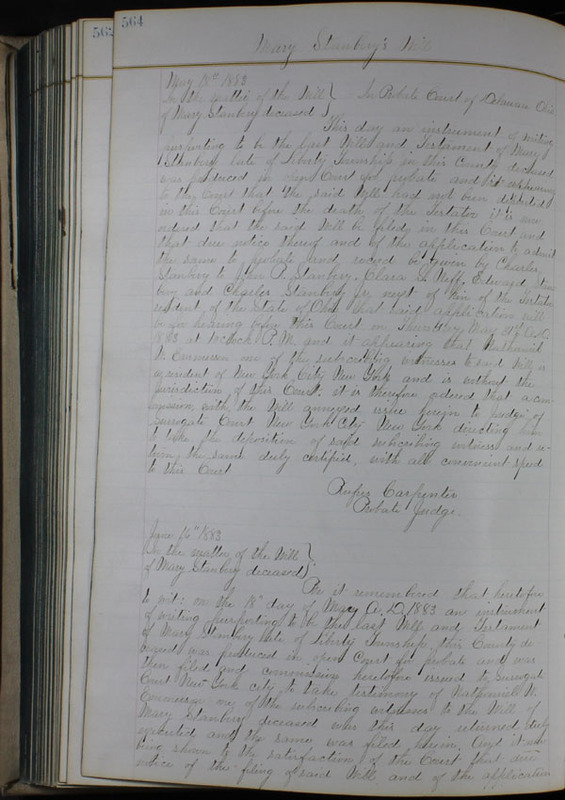 562
564
Mary Stanbery's Will
May 18th 1883
In the matter of the Will } In Probate Court of Delaware Ohio
of Mary Stanbery deceased }
This day an instrument of writing
purporting to be the last Will and Testament of Mary
Stanbery late of Liberty Township in this County deceased
was produced in open Court for probate and it appearing
to the Court that the said Will had not been deposited
in this Court before the death of the Testator it is now
ordered that the said Will be filed in this Court and
that due notice thereof and of the application to admit
the same to probate and record be given by Charles
Stanbery to John P. Stanbery, Clara S. Neff, Edward Stan
bery and Charles Stanbery Jr next of kin of the Testator
resident of the State of Ohio that said application will
be for hearing before this Court on Thursday May A.D.
1883 at 1 o'clock P.M. and it appearing that Nathaniel
W. Emmerson one of the subscribing witnesses to said Will is
a resident of New York City New York and is without the
jurisdiction of this Court. it is therefore ordered that a com
mission with the Will annexed issue herein to Judge of
Surrogate Court New York City New York directing him
to take the deposition of said subscribing witness and re-
turn the same duly certified, with all convenient speed
to this Court
Rufus Carpenter
Probate Judge.
June 16th 1883
In the matter of the Will }
of Mary Stanbery deceased }
Be it remembered that heretofore
to wit: on the 18th day of May A.D. 1883 an instrument
of writing purporting to be the last Will and Testament
of Mary Stanbery late of Liberty Township, this County de
ceased was produced in open Court for probate and was
then filed and commission heretofore issued to Surrogate
Court New York city to take testimony of Nathaniel W.
Emmerson one of the subscribing witnesses to the Will of
Mary Stanbery deceased was this day returned duly
executed and the same was filed herein. And it now
being shown to the satisfaction of the Court that due
notice of the filing of said Will and of the application